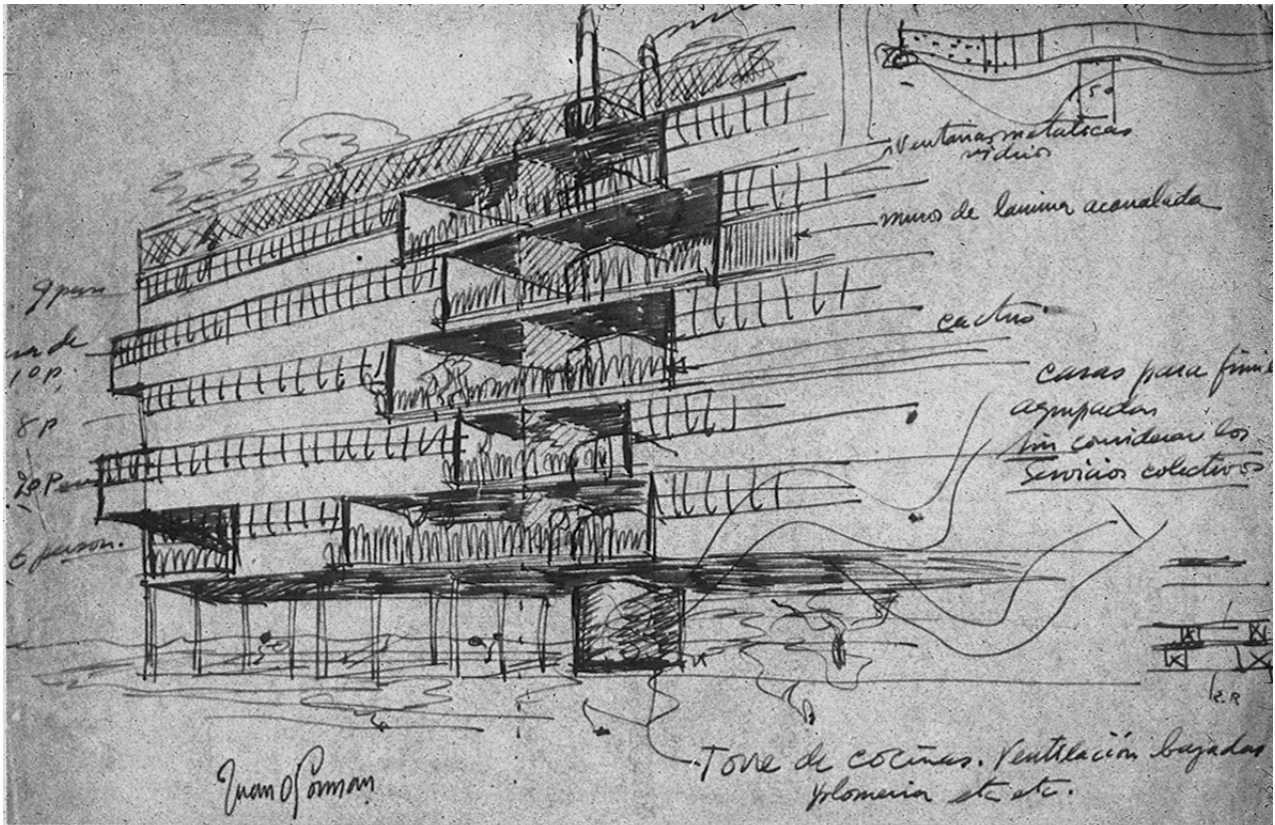 50
Ventanas metalicas
vidrios
muros de lamina acanalada
cactus
casas para
agrupadas
sin considerar los
Servicios colectivos
9 pers
de
10 P.
8 P
20 P
6 person.
E.R
Torre de cocinas. Ventilación bajadas
plomeria etc etc.
Juan O'Gorman